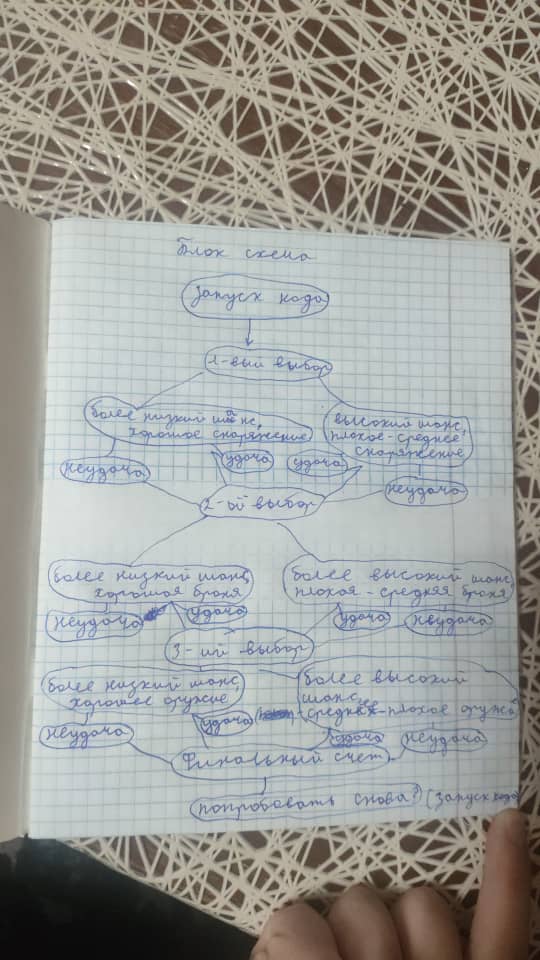 Блок схема
запуск кода
1-вый выбор
более низкий шанс,
хорошое снаряжение
высокий шанс,
плохое-среднее
снаряжение
неудача
удача
удача
неудача
2-ой выбор
более низкий шанс,
хорошая броня
более высокий шанс,
плохая-средняя броня
неудача
удача
удача
неудача
3-ий выбор
более низкий шанс,
хорошее оружие
более высокий
шанс,
-плохое оружие
неудача
удача
удача
неудача
Финальный счет
попробовать снова? (запуск кода)